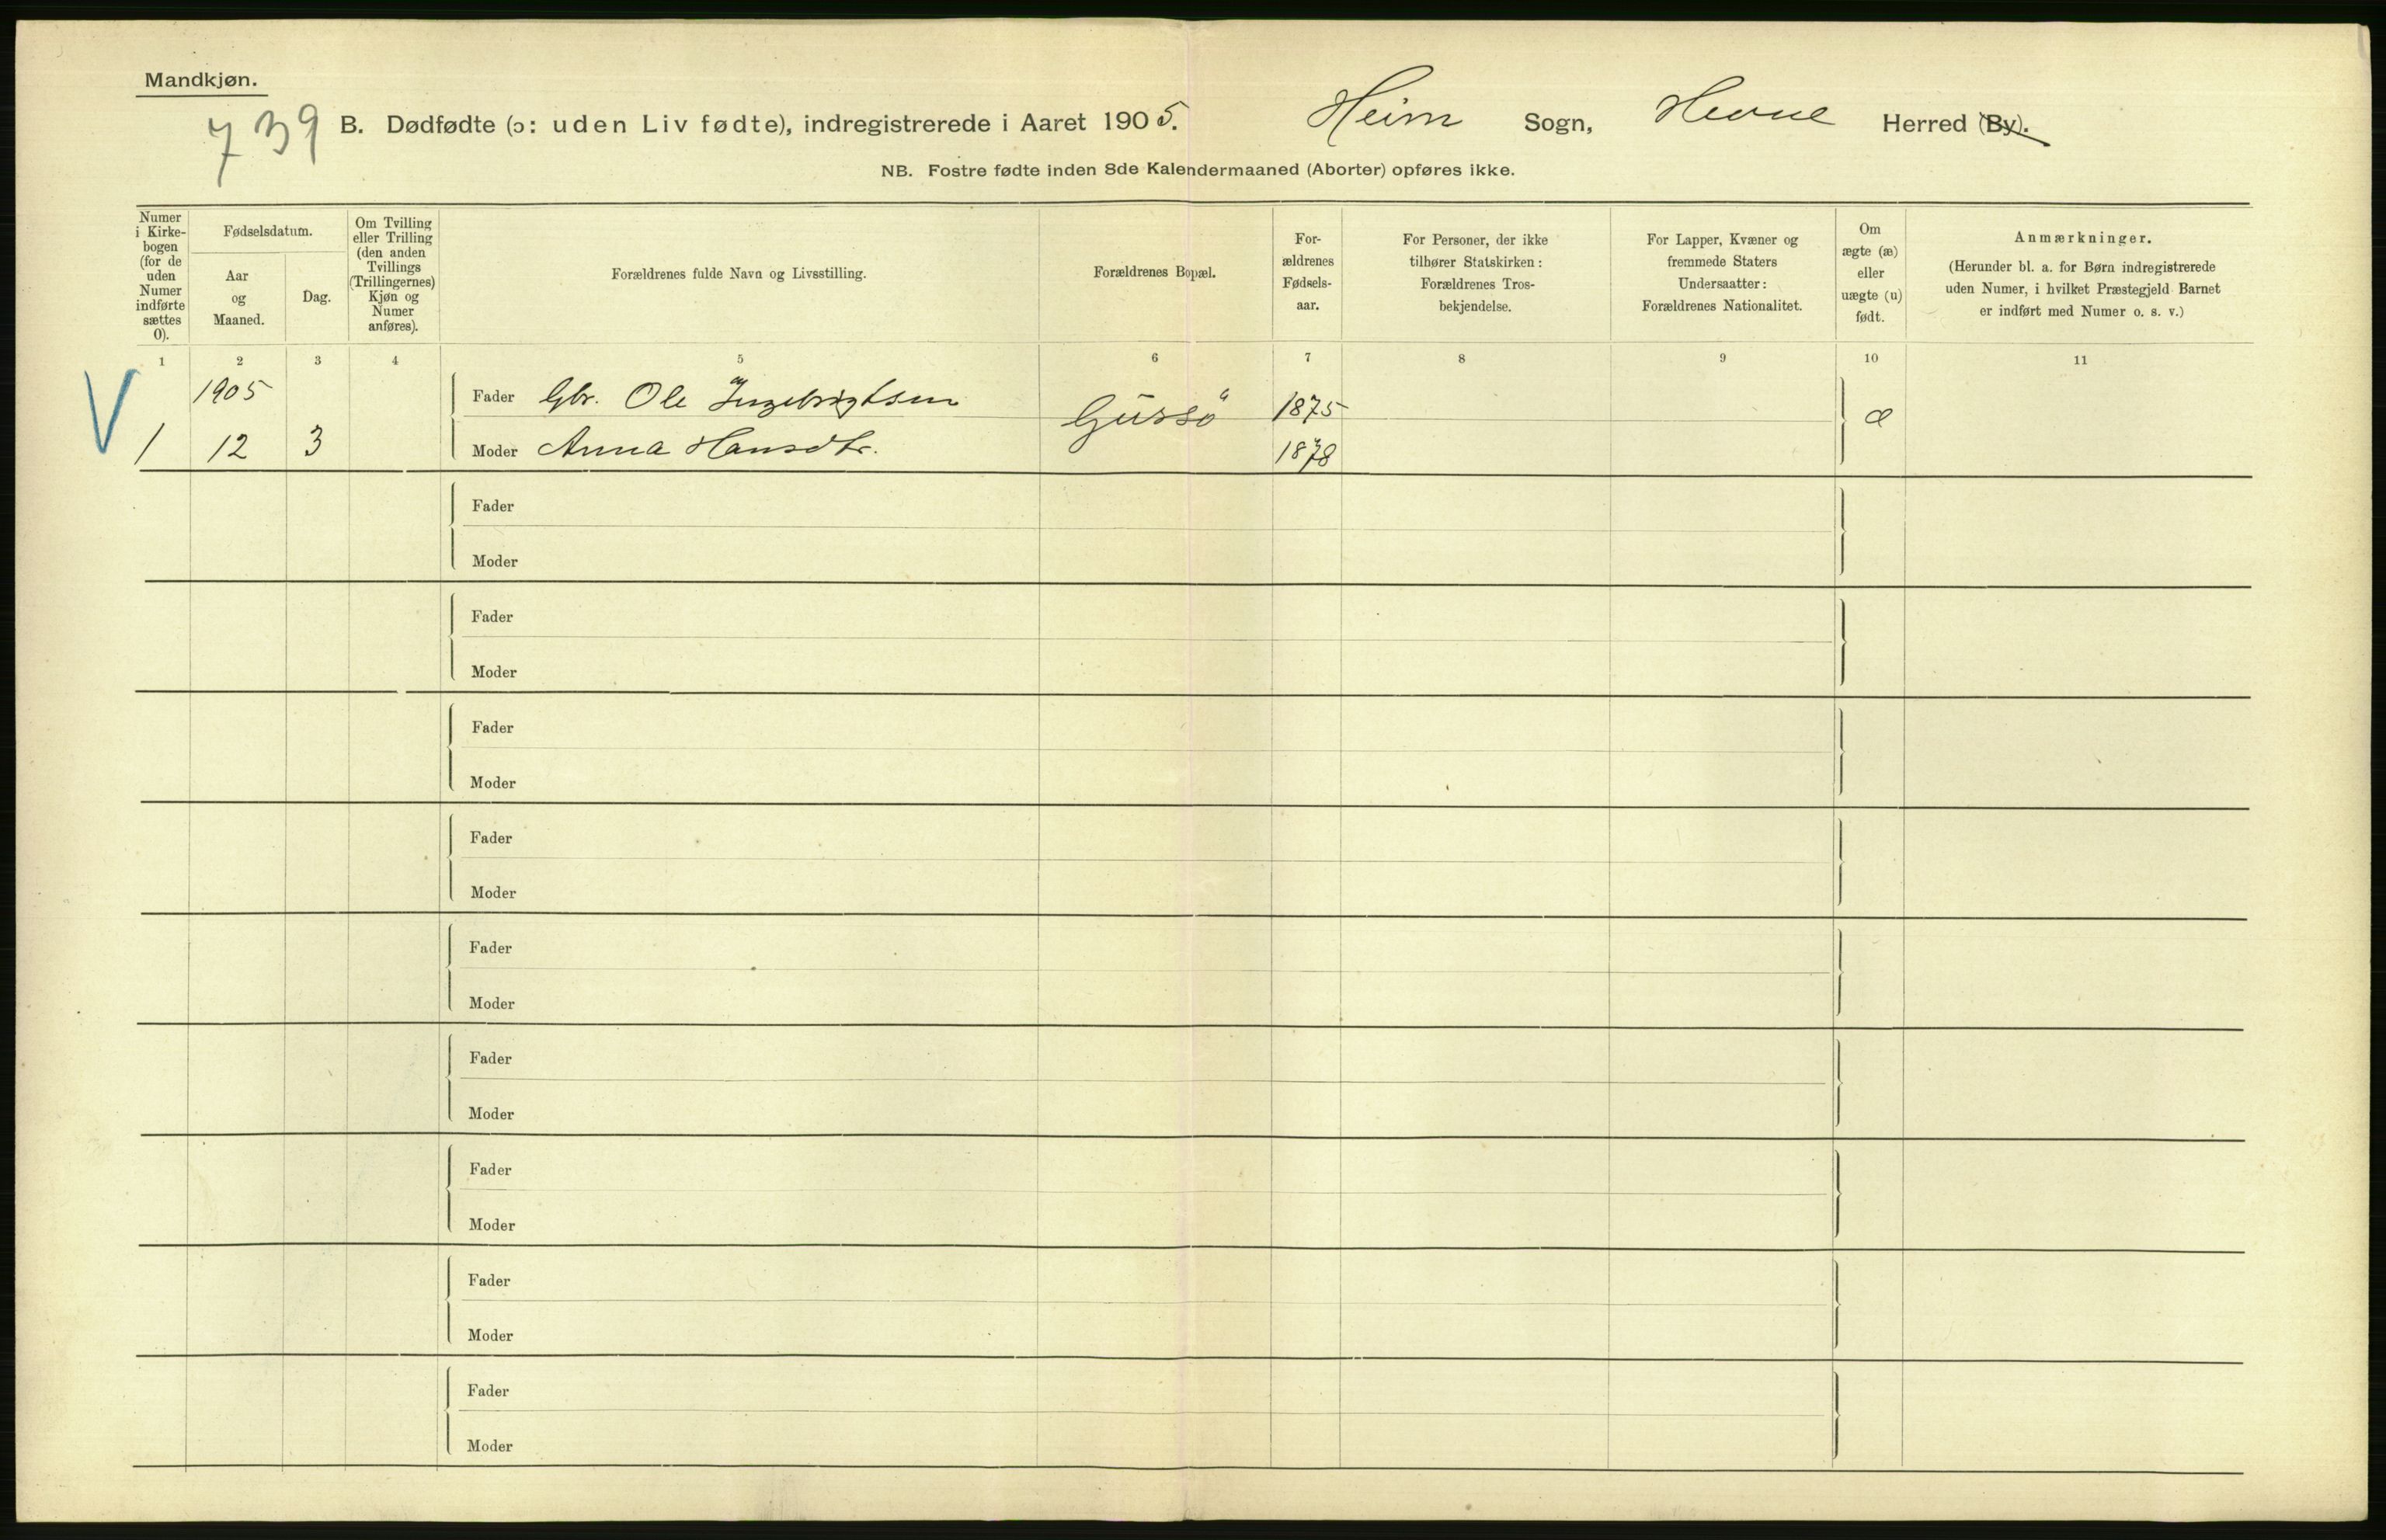 Mandkjøn.
739 B. Dødfødte (ɔ: uden Liv fødte), indregistrerede i Aaret 1905. Heim Sogn, Hevne Herred (By).
NB. Fostre fødte inden 8de Kalendermaaned (Aborter) opføres ikke.
Numer i Kirke-
bogen
(for de
uden
Numer
indførte
sættes
0).
Fødselsdatum.
Aar
og
Maaned.
Dag.
Om Tvilling
eller Trilling
(den anden
Tvillings
(Trillingernes)
Kjøn og
Numer
anføres).
Forældrenes fulde Navn og Livsstilling.
Forældrenes Bopæl.
For-
ældrenes
Fødsels-
aar.
For Personer, der ikke
tilhører Statskirken:
Forældrenes Tros-
bekjendelse.
For Lapper, Kvæner og
fremmede Staters
Undersaatter:
Forældrenes Nationalitet.
Om
ægte (æ)
eller
uægte (u)
født.
Anmærkninger.
(Herunder bl. a. for Børn indregistrerede
uden Numer, i hvilket Præstegjeld Barnet
er indført med Numer o. s. v.)
1 2 3 4 5 6 7 8 9 10 11
V 1905 Fader Gbr. Ole Ingebrigtsen Gussö 1875 æ
1 12 3 Moder Anna Hansdtr. 1878
Fader
Moder
Fader
Moder
Fader
Moder
Fader
Moder
Fader
Moder
Fader
Moder
Fader
Moder
Fader
Moder
Fader
Moder